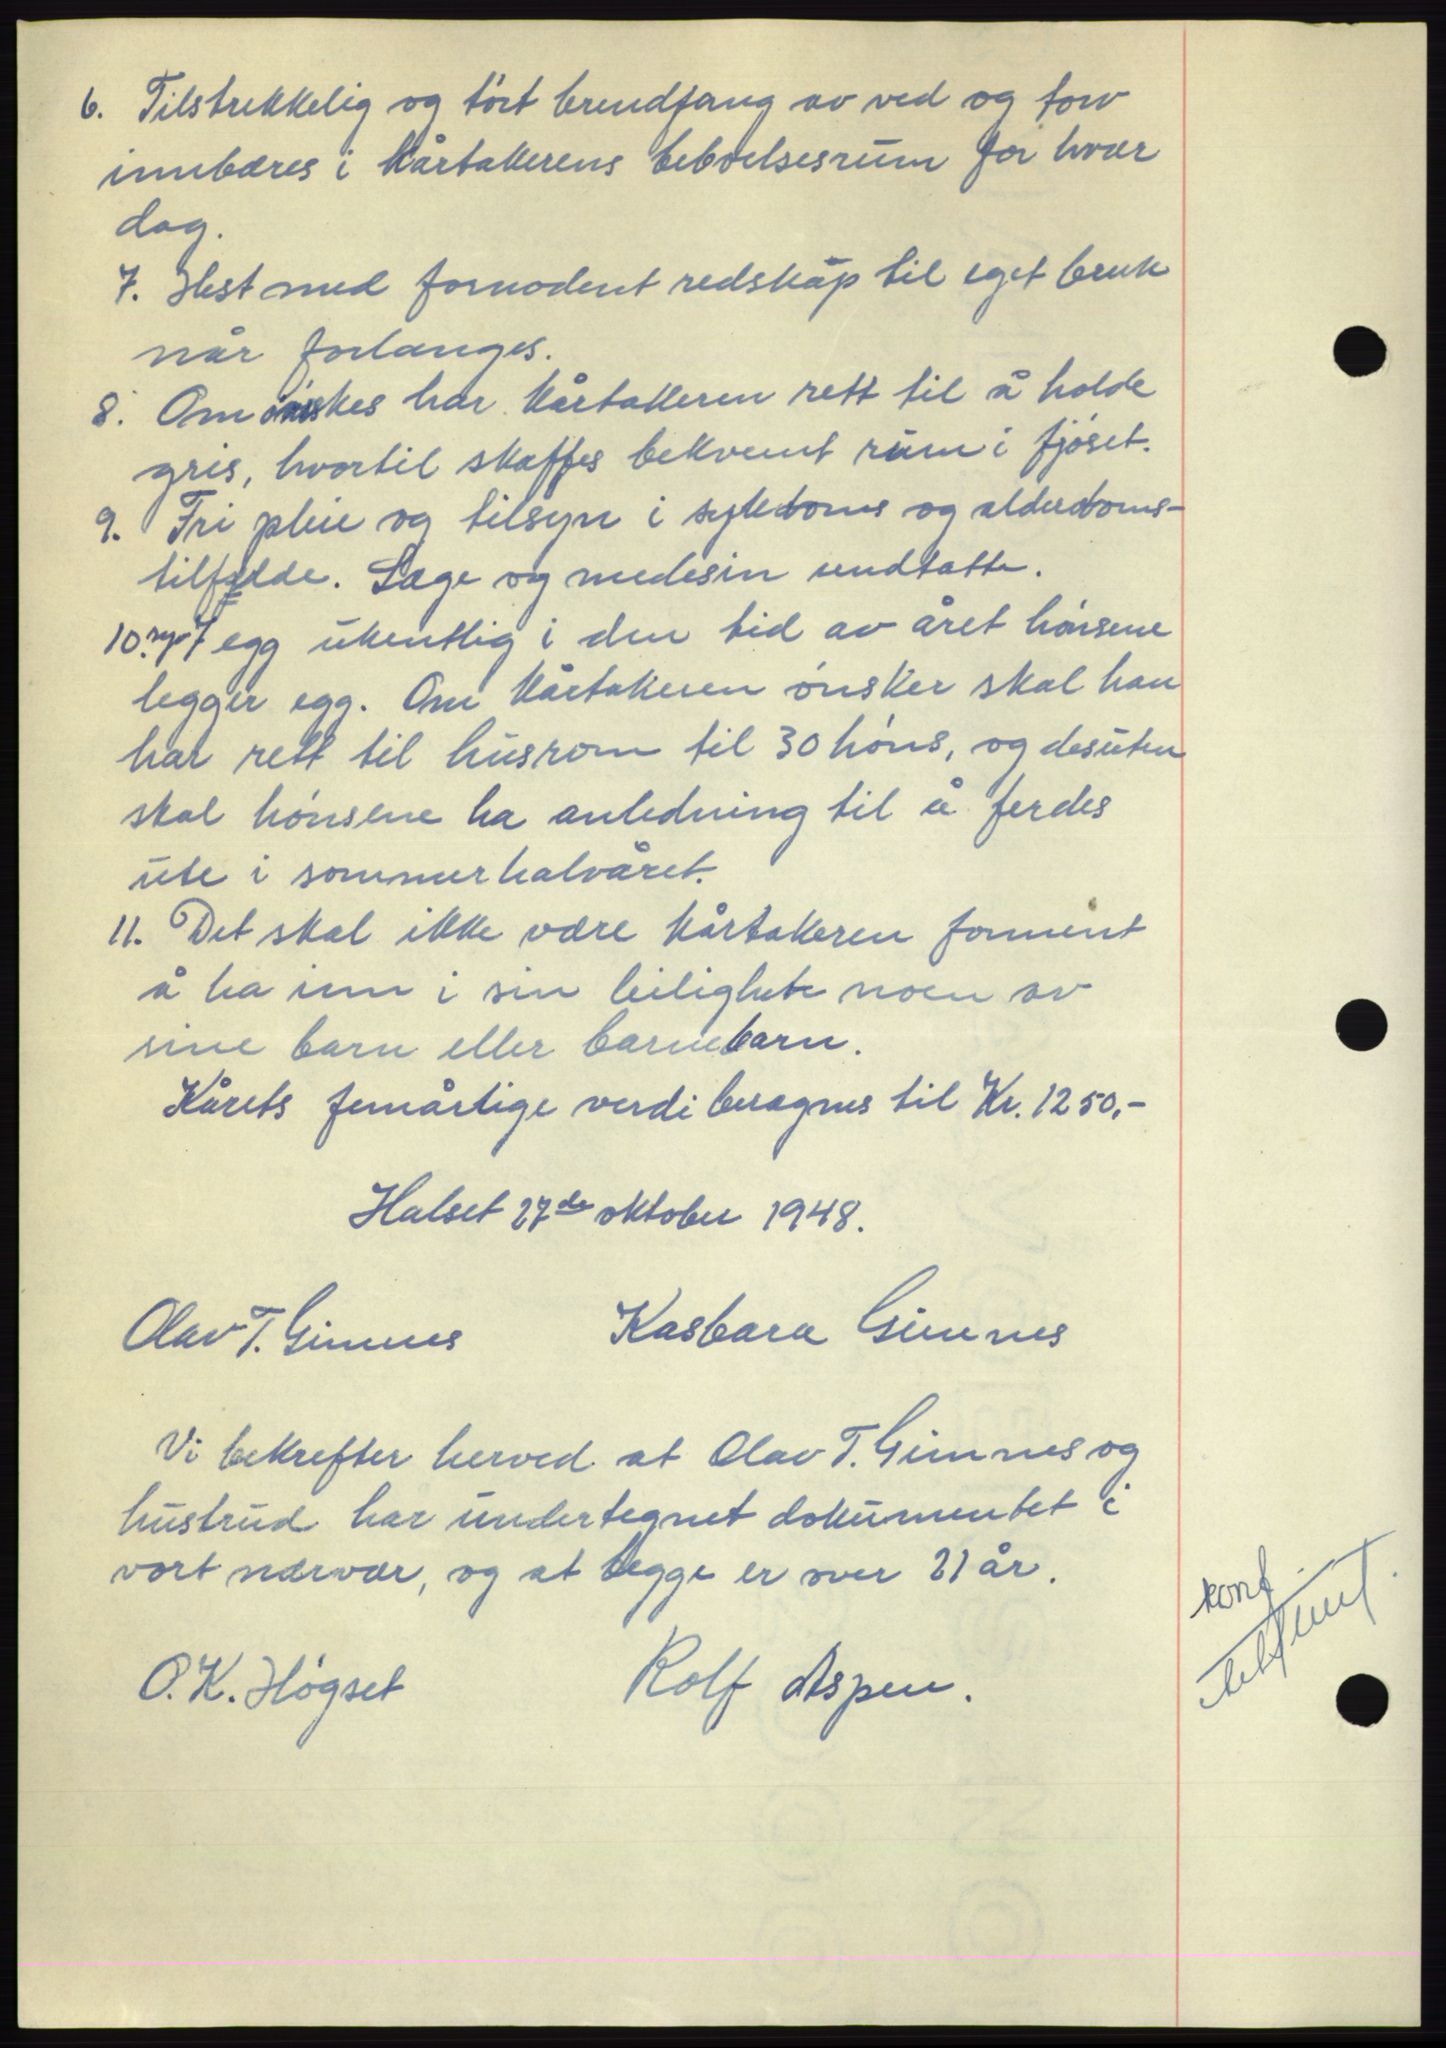 6. Tilstrekkelig og tört brendfang av ved og torv
innbæres i kårtakerens beboelsesrum for hver
dag.
7. Hest med fornødent redskap til eget bruk
når forlanges.
8. Om önskes har kårtakeren rett til å holde
gris, hvortil skaffes bekvemt rum i fjöset.
9. Fri pleie og tilsyn i sykdoms og alderdoms-
tilfelde. Læge og medesin undtatte.
10. syv 7 egg ukentlig i den tid av året hönsene
legger egg. Om kårtakeren önsker skal han
har rett til husrom til 30 höns, og desuten
skal hönsene ha anledning til å ferdes
ute i sommerhalvåret.
11. Det skal ikke være kårtakeren forment
å ha inn i sin leilighete noen av
sine barn eller barnebarn.
Kårets femårlige verdi beregnes til Kr. 1250,-
Halset 27de oktober 1948.
Olav T. Gimnes Kasbara Gimnes
Vi bekrefter herved at Olav T. Gimnes og
hustrud har undertegnet dokumentet i
vort nærvær, og at begge er over 21 år.
O. K. Högset Rolf Aspen.
konf